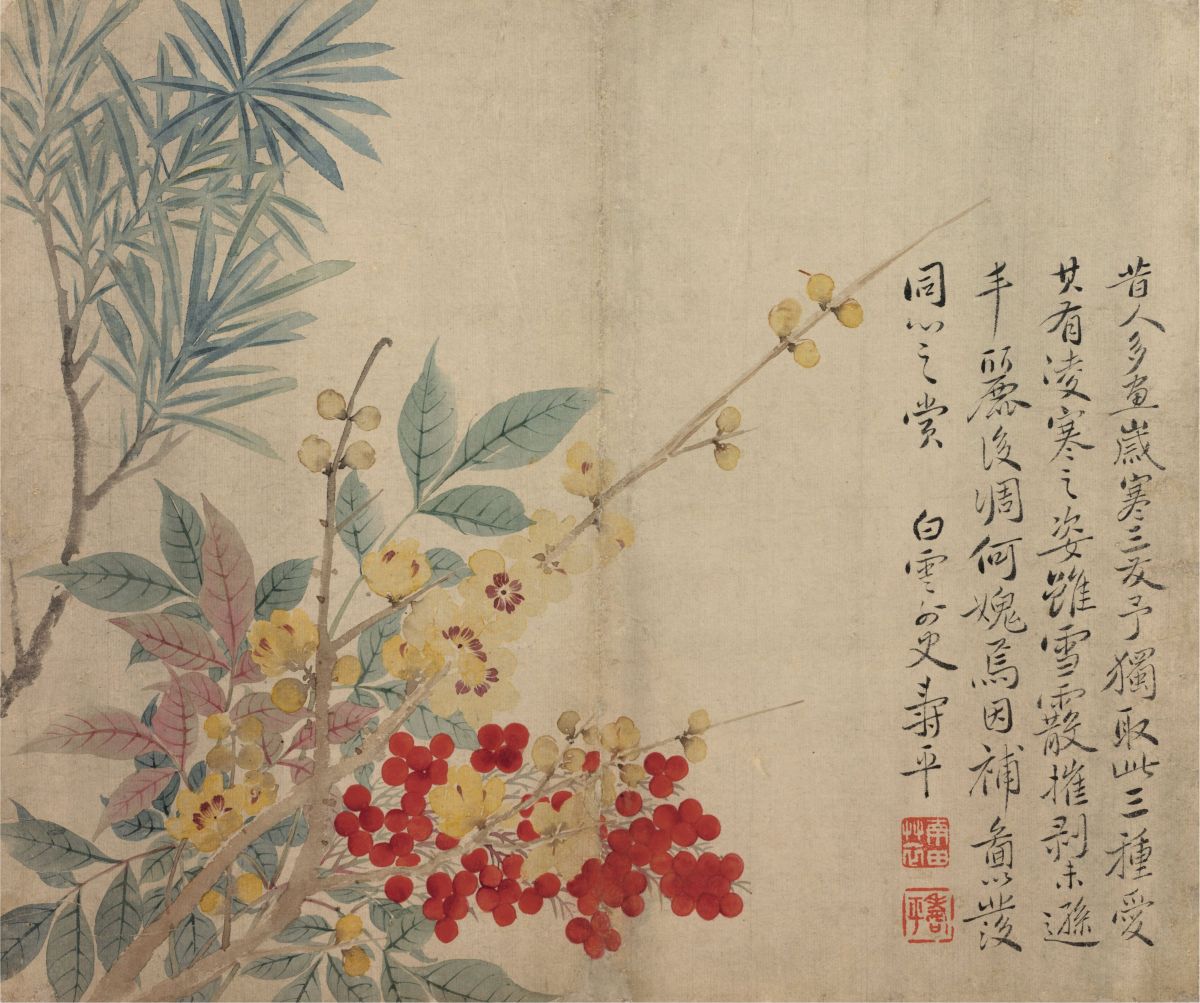 昔人多畫歲寒三友予獨取此三種愛
其有凌寒之姿雖雪霰摧剥未遜
丰麗後凋何媿焉因補發
同心之賞 白雲外史壽平
南田草衣
壽平